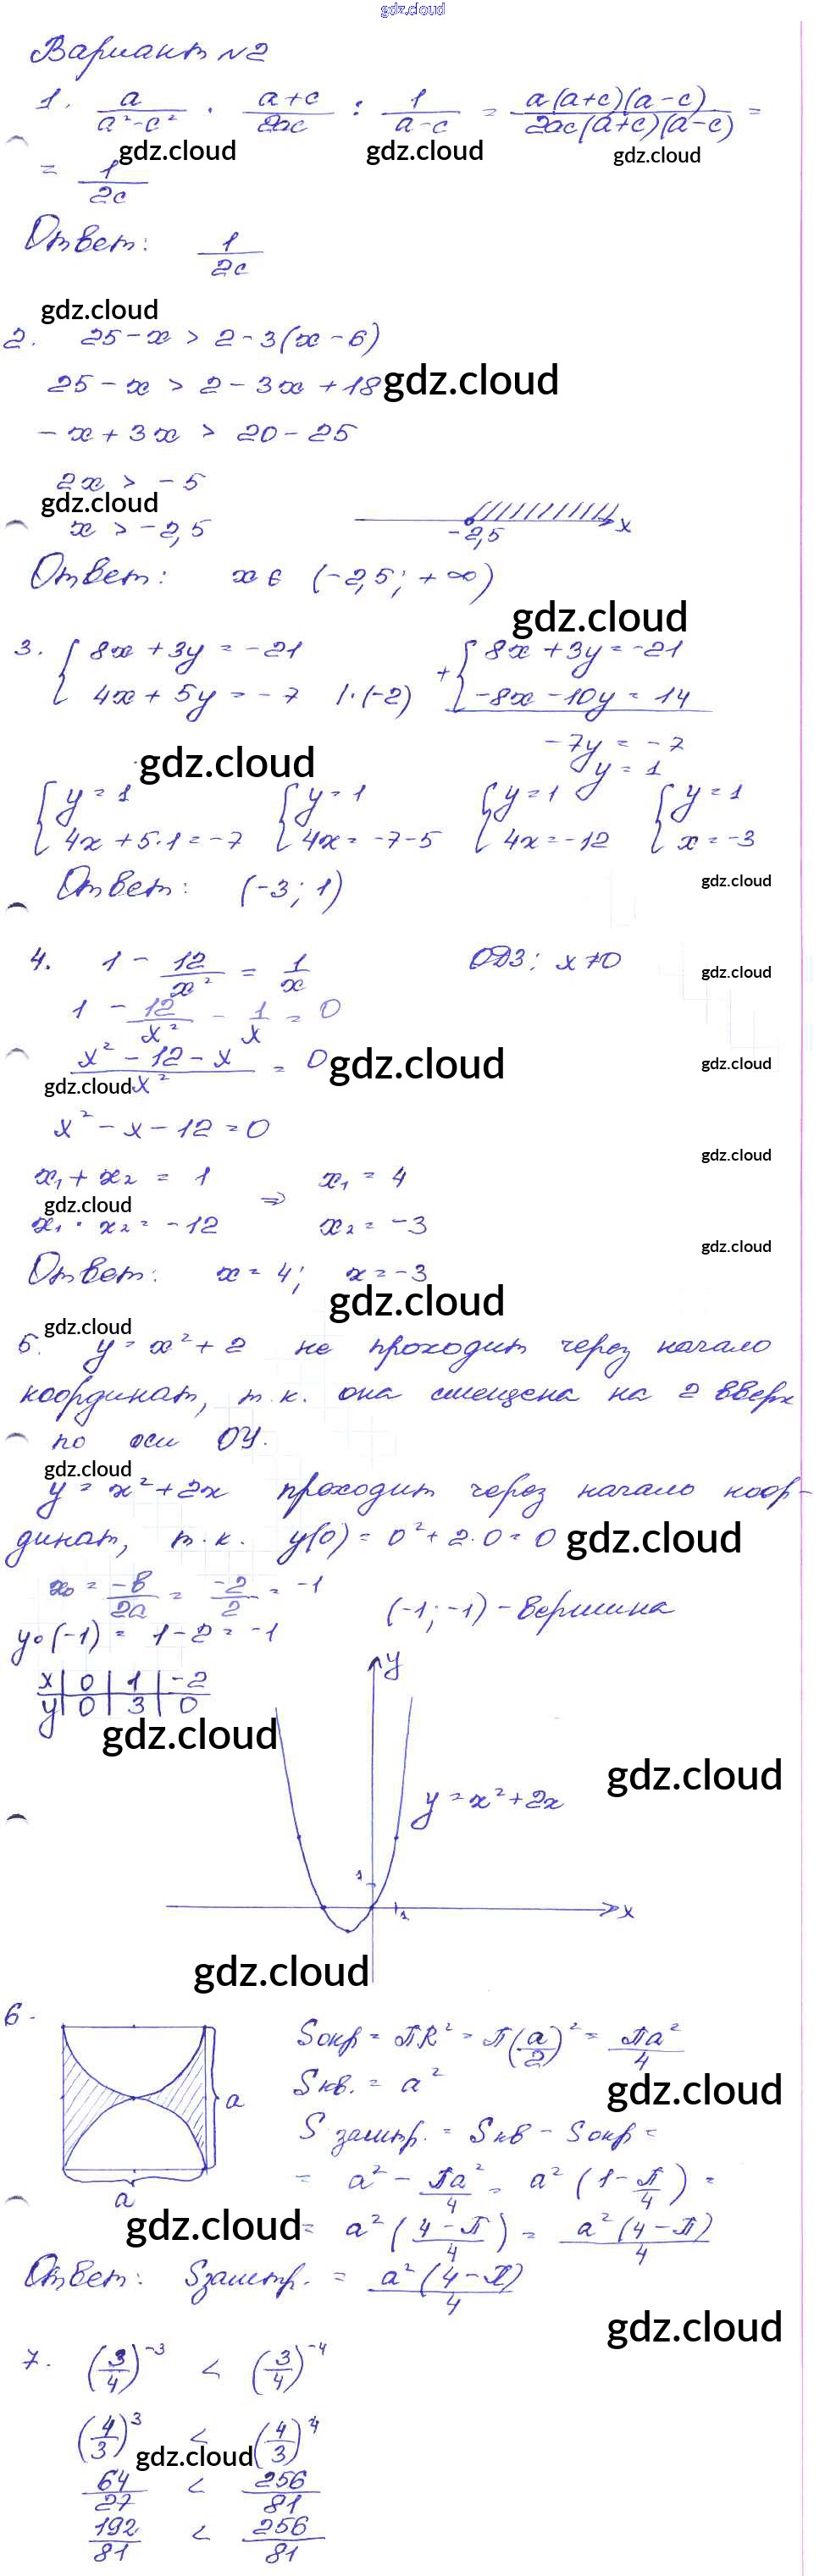 gdz.cloud
Вариант №2
1. a/(a²-c²) · (a+c)/(2ac) : 1/(a-c) = a(a+c)(a-c)/(2ac(a+c)(a-c)) =
gdz.cloud gdz.cloud gdz.cloud
= 1/(2c)
Ответ: 1/(2c)
gdz.cloud
2. 25-x > 2-3(x-6)
25-x > 2-3x+18
gdz.cloud
-x+3x > 20-25
2x > -5
gdz.cloud
x > -2,5
-2,5 x
Ответ: x∈ (-2,5; +∞)
gdz.cloud
3. { 8x+3y = -21 + { 8x+3y = -21
4x+5y = -7 |·(-2) -8x-10y = 14
-7y = -7
gdz.cloud
y = 1
{ y=1 { y=1 { y=1 { y=1
4x+5·1=-7 4x=-7-5 4x=-12 x=-3
Ответ: (-3; 1)
gdz.cloud
4. 1 - 12/x² = 1/x ОДЗ: x≠0
gdz.cloud
1 - 12/x² - 1/x = 0
(x²-12-x)/x² = 0
gdz.cloud gdz.cloud
gdz.cloud
x²-x-12=0
gdz.cloud
x₁+x₂ = 1 ⇒ x₁ = 4
gdz.cloud
x₁·x₂ = -12 x₂ = -3
gdz.cloud
Ответ: x=4; x=-3
gdz.cloud
gdz.cloud
5. y=x²+2 не проходит через начало
координат, т.к. она смещена на 2 вверх
по оси ОУ.
gdz.cloud
y=x²+2x проходит через начало коор-
динат, т.к. y(0)=0²+2·0=0
gdz.cloud
x₀ = -в/2a = -2/2 = -1
(-1;-1) - вершина
y₀(-1) = 1-2 = -1
x | 0 | 1 | -2
y | 0 | 3 | 0
y
gdz.cloud
gdz.cloud
y=x²+2x
1
1 x
gdz.cloud
6. Sокр = πR² = π(a/2)² = πa²/4
Sкв. = a²
gdz.cloud
a
S заштр. = Sкв - Sокр =
= a² - πa²/4 = a²(1-π/4) =
a
gdz.cloud
= a²((4-π)/4) = a²(4-π)/4
Ответ: Sзаштр. = a²(4-π)/4
gdz.cloud
7. (3/4)⁻³ < (3/4)⁻⁴
(4/3)³ < (4/3)⁴
gdz.cloud
64/27 < 256/81
192/81 < 256/81